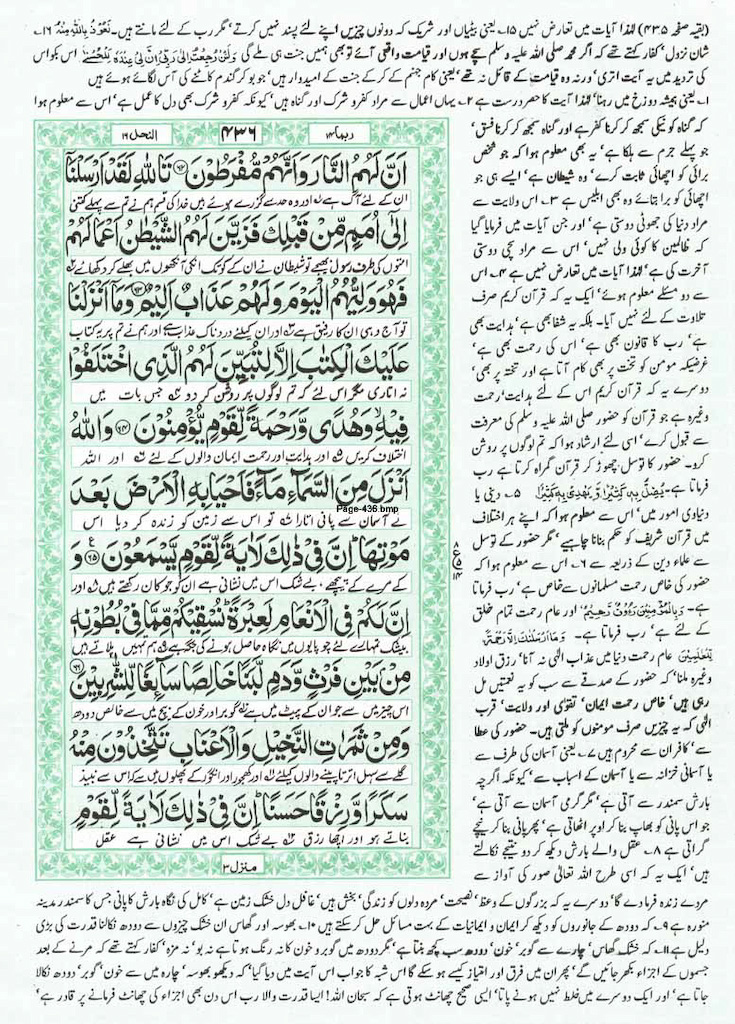 (بقیہ صفحہ ۴۳۵) لہٰذا آیات میں تعارض نہیں ۱۵۔ یعنی بیٹیاں اور شریک کہ دونوں چیزیں اپنے لئے پسند نہیں کرتے، مگر رب کے لئے مانتے ہیں۔ نَعُوْذُ بِاللّٰہِ مِنْہُ ۱۶۔
شان نزول، کفار کہتے تھے کہ اگر محمد صلی اللہ علیہ وسلم سچے ہوں اور قیامت واقعی آئے تو بھی ہمیں جنت ہی ملے گی
کی تردید میں یہ آیت اتری، ورنہ وہ قیامت کے قائل نہ تھے، یعنی کام جہنم کے کر کے جنت کے امیدوار ہیں، جو بو کر گندم کاٹنے کی آس لگائے ہوئے ہیں
۱۔ یعنی ہمیشہ دوزخ میں رہنا، لہٰذا آیت کا حصر درست ہے ۲۔ یہاں اعمال سے مراد کفر و شرک اور گناہ ہیں، کیونکہ کفر و شرک بھی دل کا عمل ہے، اس سے معلوم ہوا
کہ گناہ کو نیکی سمجھ کر کرنا کفر ہے اور گناہ سمجھ کر کرنا فسق،
جو پہلے جرم سے ہلکا ہے، یہ بھی معلوم ہوا کہ جو شخص
برائی کو اچھائی ثابت کرے، وہ شیطان ہے، ایسے ہی جو
اچھائی کو برا بتائے وہ بھی ابلیس ہے ۳۔ اس ولایت سے
مراد دنیا کی جھوٹی دوستی ہے، اور جن آیات میں فرمایا گیا
کہ ظالمین کا کوئی ولی نہیں، اس سے مراد سچی دوستی
آخرت کی ہے، لہٰذا آیات میں تعارض نہیں ہے ۴۔ اس
سے دو مسئلے معلوم ہوئے، ایک یہ کہ قرآن کریم صرف
تلاوت کے لئے نہیں آیا۔ بلکہ یہ شفا بھی ہے، ہدایت بھی
ہے، رب کا قانون بھی ہے، اس کی رحمت بھی ہے،
غرضیکہ مومن کو تخت پر بھی کام آتا ہے اور تختہ پر بھی،
دوسرے یہ کہ قرآن کریم اس کے لئے ہدایت، رحمت
وغیرہ ہے جو قرآن کو حضور صلی اللہ علیہ وسلم کی معرفت
سے قبول کرے، اسی لئے ارشاد ہوا کہ تم لوگوں پر روشن
کرو۔ حضور کا توسل چھوڑ کر قرآن گمراہ کرتا ہے رب
فرماتا ہے۔ یُضِلُّ بِہٖ کَثِیْرًا وَّ یَھْدِیْ بِہٖ کَثِیْرًا ۵۔ دینی یا
دنیاوی امور میں، اس سے معلوم ہوا کہ اپنے ہر اختلاف
میں قرآن شریف کو حکم بنانا چاہیے، مگر حضور کے توسل
سے علماء دین کے ذریعہ سے ۶۔ اس سے معلوم ہوا کہ
حضور کی خاص رحمت مسلمانوں سے خاص ہے، رب فرماتا
ہے۔ وَبِالْمُؤْمِنِیْنَ رَءُوْفٌ رَّحِیْمٌ، اور عام رحمت تمام خلق
کے لئے ہے، رب فرماتا ہے۔ وَمَا اَرْسَلْنٰکَ اِلَّا رَحْمَۃً
لِّلْعٰلَمِیْنَ عام رحمت دنیا میں عذاب الٰہی نہ آنا، رزق اولاد
وغیرہ ملنا، کہ حضور کے صدقے سے سب کو یہ نعمتیں مل
رہی ہیں، خاص رحمت ایمان، تقویٰ اور ولایت، قرب
الٰہی کہ یہ چیزیں صرف مومنوں کو ملتی ہیں۔ حضور کی عطا
سے، کافران سے محروم ہیں ۷۔ یعنی آسمان کی طرف سے
یا آسمانی خزانہ سے یا آسمان کے اسباب سے، کیونکہ اگرچہ
بارش سمندر سے آتی ہے، مگر گرمی آسمان سے آتی ہے،
جو اس پانی کو بھاپ بنا کر اوپر اٹھاتی ہے، پھر پانی بنا کر نیچے
گراتی ہے ۸۔ عقل والے بارش دیکھ کر دو نتیجے نکالتے
ہیں، ایک یہ کہ اسی طرح اللہ تعالیٰ صور کی آواز سے
ربما ۱۴
۴۳۶
النحل ۱۶
اَنَّ لَهُمُ النَّارَ وَاَنَّهُمْ مُّفْرَطُوْنَ ﴿۶۲﴾ تَاللّٰهِ لَقَدْ اَرْسَلْنَاۤ
ان کے لئے آگ ہے اور وہ حد سے گزرے ہوئے ہیں خدا کی قسم ہم نے تم سے پہلے کتنی
اِلٰۤى اُمَمٍ مِّنْ قَبْلِكَ فَزَيَّنَ لَهُمُ الشَّيْطٰنُ اَعْمَالَهُمْ
امتوں کی طرف رسول بھیجے تو شیطان نے ان کے کوتک انکی آنکھوں میں بھلے کر دکھائے
فَهُوَ وَلِيُّهُمُ الْيَوْمَ وَلَهُمْ عَذَابٌ اَلِيْمٌ ﴿۶۳﴾ وَمَاۤ اَنْزَلْنَا
تو آج وہی ان کا رفیق ہے اور ان کیلئے دردناک عذاب ہے اور ہم نے تم پر یہ کتاب
عَلَيْكَ الْكِتٰبَ اِلَّا لِتُبَيِّنَ لَهُمُ الَّذِى اخْتَلَفُوْا
نہ اتاری مگر اس لئے کہ تم لوگوں پر روشن کر دو جس بات میں
فِيْهِ ۙ وَهُدًى وَّرَحْمَةً لِّقَوْمٍ يُّؤْمِنُوْنَ ﴿۶۴﴾ وَاللّٰهُ
اختلاف کریں اور ہدایت اور رحمت ایمان والوں کے لئے اور اللہ
اَنْزَلَ مِنَ السَّمَآءِ مَآءً فَاَحْيَا بِهِ الْاَرْضَ بَعْدَ
نے آسمان سے پانی اتارا تو اس سے زمین کو زندہ کر دیا اس
Page-436.bmp
مَوْتِهَا ؕ اِنَّ فِىْ ذٰلِكَ لَاٰيَةً لِّقَوْمٍ يَّسْمَعُوْنَ ﴿۶۵﴾ وَ
کے مرے کے پیچھے، بے شک اس میں نشانی ہے ان کو جو کان رکھتے ہیں اور
اِنَّ لَكُمْ فِى الْاَنْعَامِ لَعِبْرَةً ؕ نُسْقِيْكُمْ مِّمَّا فِىْ بُطُوْنِهٖ
بیشک تمہارے لئے چوپایوں میں نگاہ حاصل ہونے کی جگہ ہے ہم تمہیں پلاتے ہیں
مِنْۢ بَيْنِ فَرْثٍ وَّدَمٍ لَّبَنًا خَالِصًا سَآئِغًا لِّلشّٰرِبِيْنَ ﴿۶۶﴾
اس چیز میں سے جو ان کے پیٹ میں ہے گوبر اور خون کے بیچ میں سے خالص دودھ
وَمِنْ ثَمَرٰتِ النَّخِيْلِ وَالْاَعْنَابِ تَتَّخِذُوْنَ مِنْهُ
گلے سے سہل اترتا پینے والوں کیلئے اور کھجور اور انگور کے پھلوں میں سے کہ اس سے نبیذ
سَكَرًا وَّرِزْقًا حَسَنًا ؕ اِنَّ فِىْ ذٰلِكَ لَاٰيَةً لِّقَوْمٍ
بناتے ہو اور اچھا رزق بے شک اس میں نشانی ہے عقل
منزل ۳
مردے زندہ فرما دے گا، دوسرے یہ کہ بزرگوں کے وعظ، نصیحت، مردہ دلوں کو زندگی، بخش ہیں، غافل دل خشک زمین ہے، کامل کی نگاہ بارش کا پانی جس کا سمندر مدینہ
منورہ ہے ۹۔ کہ دودھ کے جانوروں کو دیکھ کر ایمان و ایمانیات کے بہت مسائل حل کر سکتے ہیں ۱۰۔ بھوسہ اور گھاس ان خشک چیزوں سے دودھ نکالنا قدرت کی بڑی
دلیل ہے ۱۱۔ کہ خشک گھاس، چارے سے گوبر، خون، دودھ سب کچھ بنتا ہے، مگر دودھ میں گوبر و خون کا نہ رنگ ہوتا ہے نہ بو، نہ مزہ، کفار کہتے تھے کہ مرنے کے بعد
جسموں کے اجزاء بکھر جائیں گے، پھر ان میں فرق اور امتیاز کیسے ہو سکے گا اس شبہ کا جواب اس آیت میں دیا گیا، کہ دیکھو بھوسہ، چارہ میں سے خون، گوبر، دودھ نکالا
جاتا ہے، اور ایک دوسرے میں خلط نہیں ہونے پاتا، ایسی صحیح چھانٹ ہوتی ہے کہ سبحان اللہ! ایسا قدرت والا رب اس دن بھی اجزاء کی چھانٹ فرمانے پر قادر ہے،